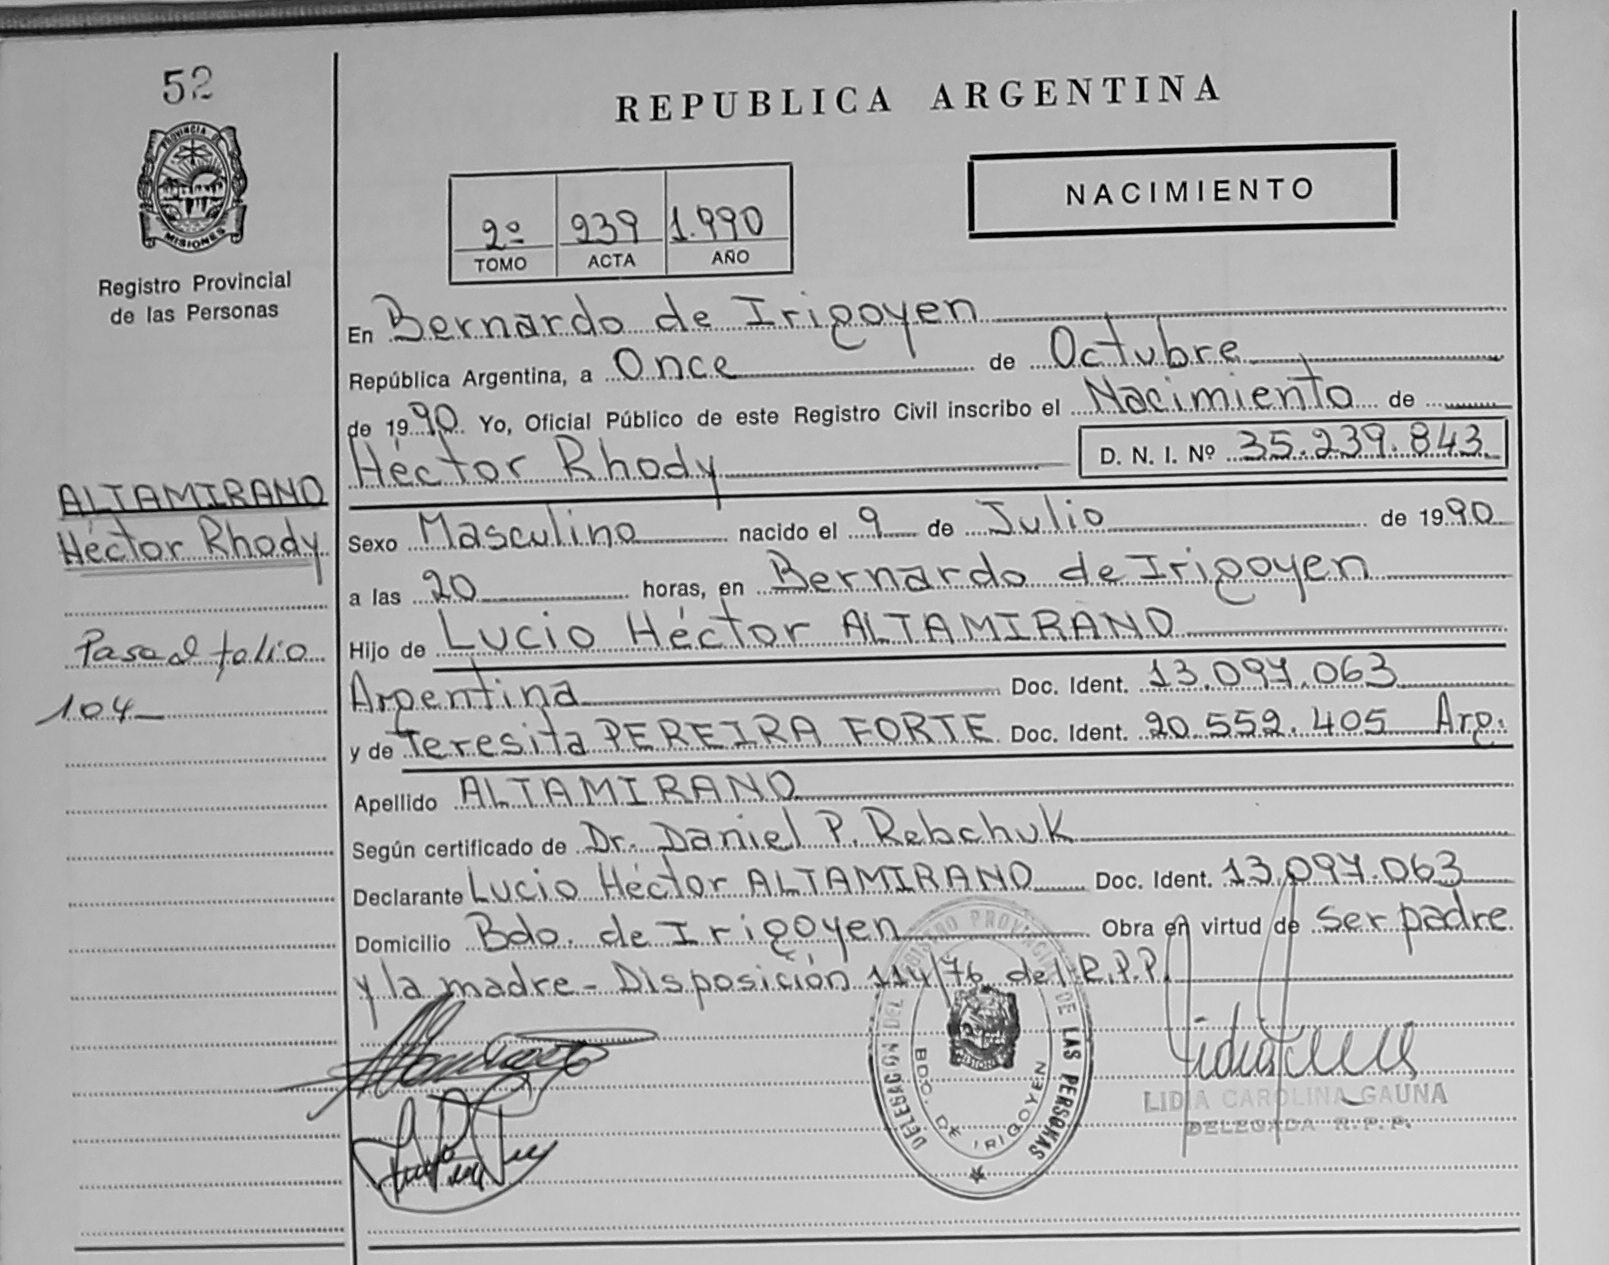 52
PROVINCIA DE
MISIONES
Registro Provincial
de las Personas
ALTAMIRANO
Héctor Rhody
Pasa al folio
104
REPUBLICA ARGENTINA
NACIMIENTO
2º 239 1.990
TOMO ACTA AÑO
En Bernardo de Irigoyen
República Argentina, a Once de Octubre
de 1990 Yo, Oficial Público de este Registro Civil inscribo el Nacimiento de
Héctor Rhody D. N. I. Nº 35.239.843
Sexo Masculino nacido el 9 de Julio de 1990
a las 20 horas, en Bernardo de Irigoyen
Hijo de Lucio Héctor ALTAMIRANO
Argentina Doc. Ident. 13.097.063
y de Teresita PEREIRA FORTE Doc. Ident. 20.552.405 Arg.
Apellido ALTAMIRANO
Según certificado de Dr. Daniel P. Rebchuk
Declarante Lucio Héctor ALTAMIRANO Doc. Ident. 13.097.063
Domicilio Bdo. de Irigoyen Obra en virtud de ser padre
y la madre - Disposición 114/76 del R.P.P.
DELEGACION DEL REGISTRO PROVINCIAL DE LAS PERSONAS
BDO. DE IRIGOYEN
MISIONES
LIDIA CAROLINA GAUNA
DELEGADA R.P.P.